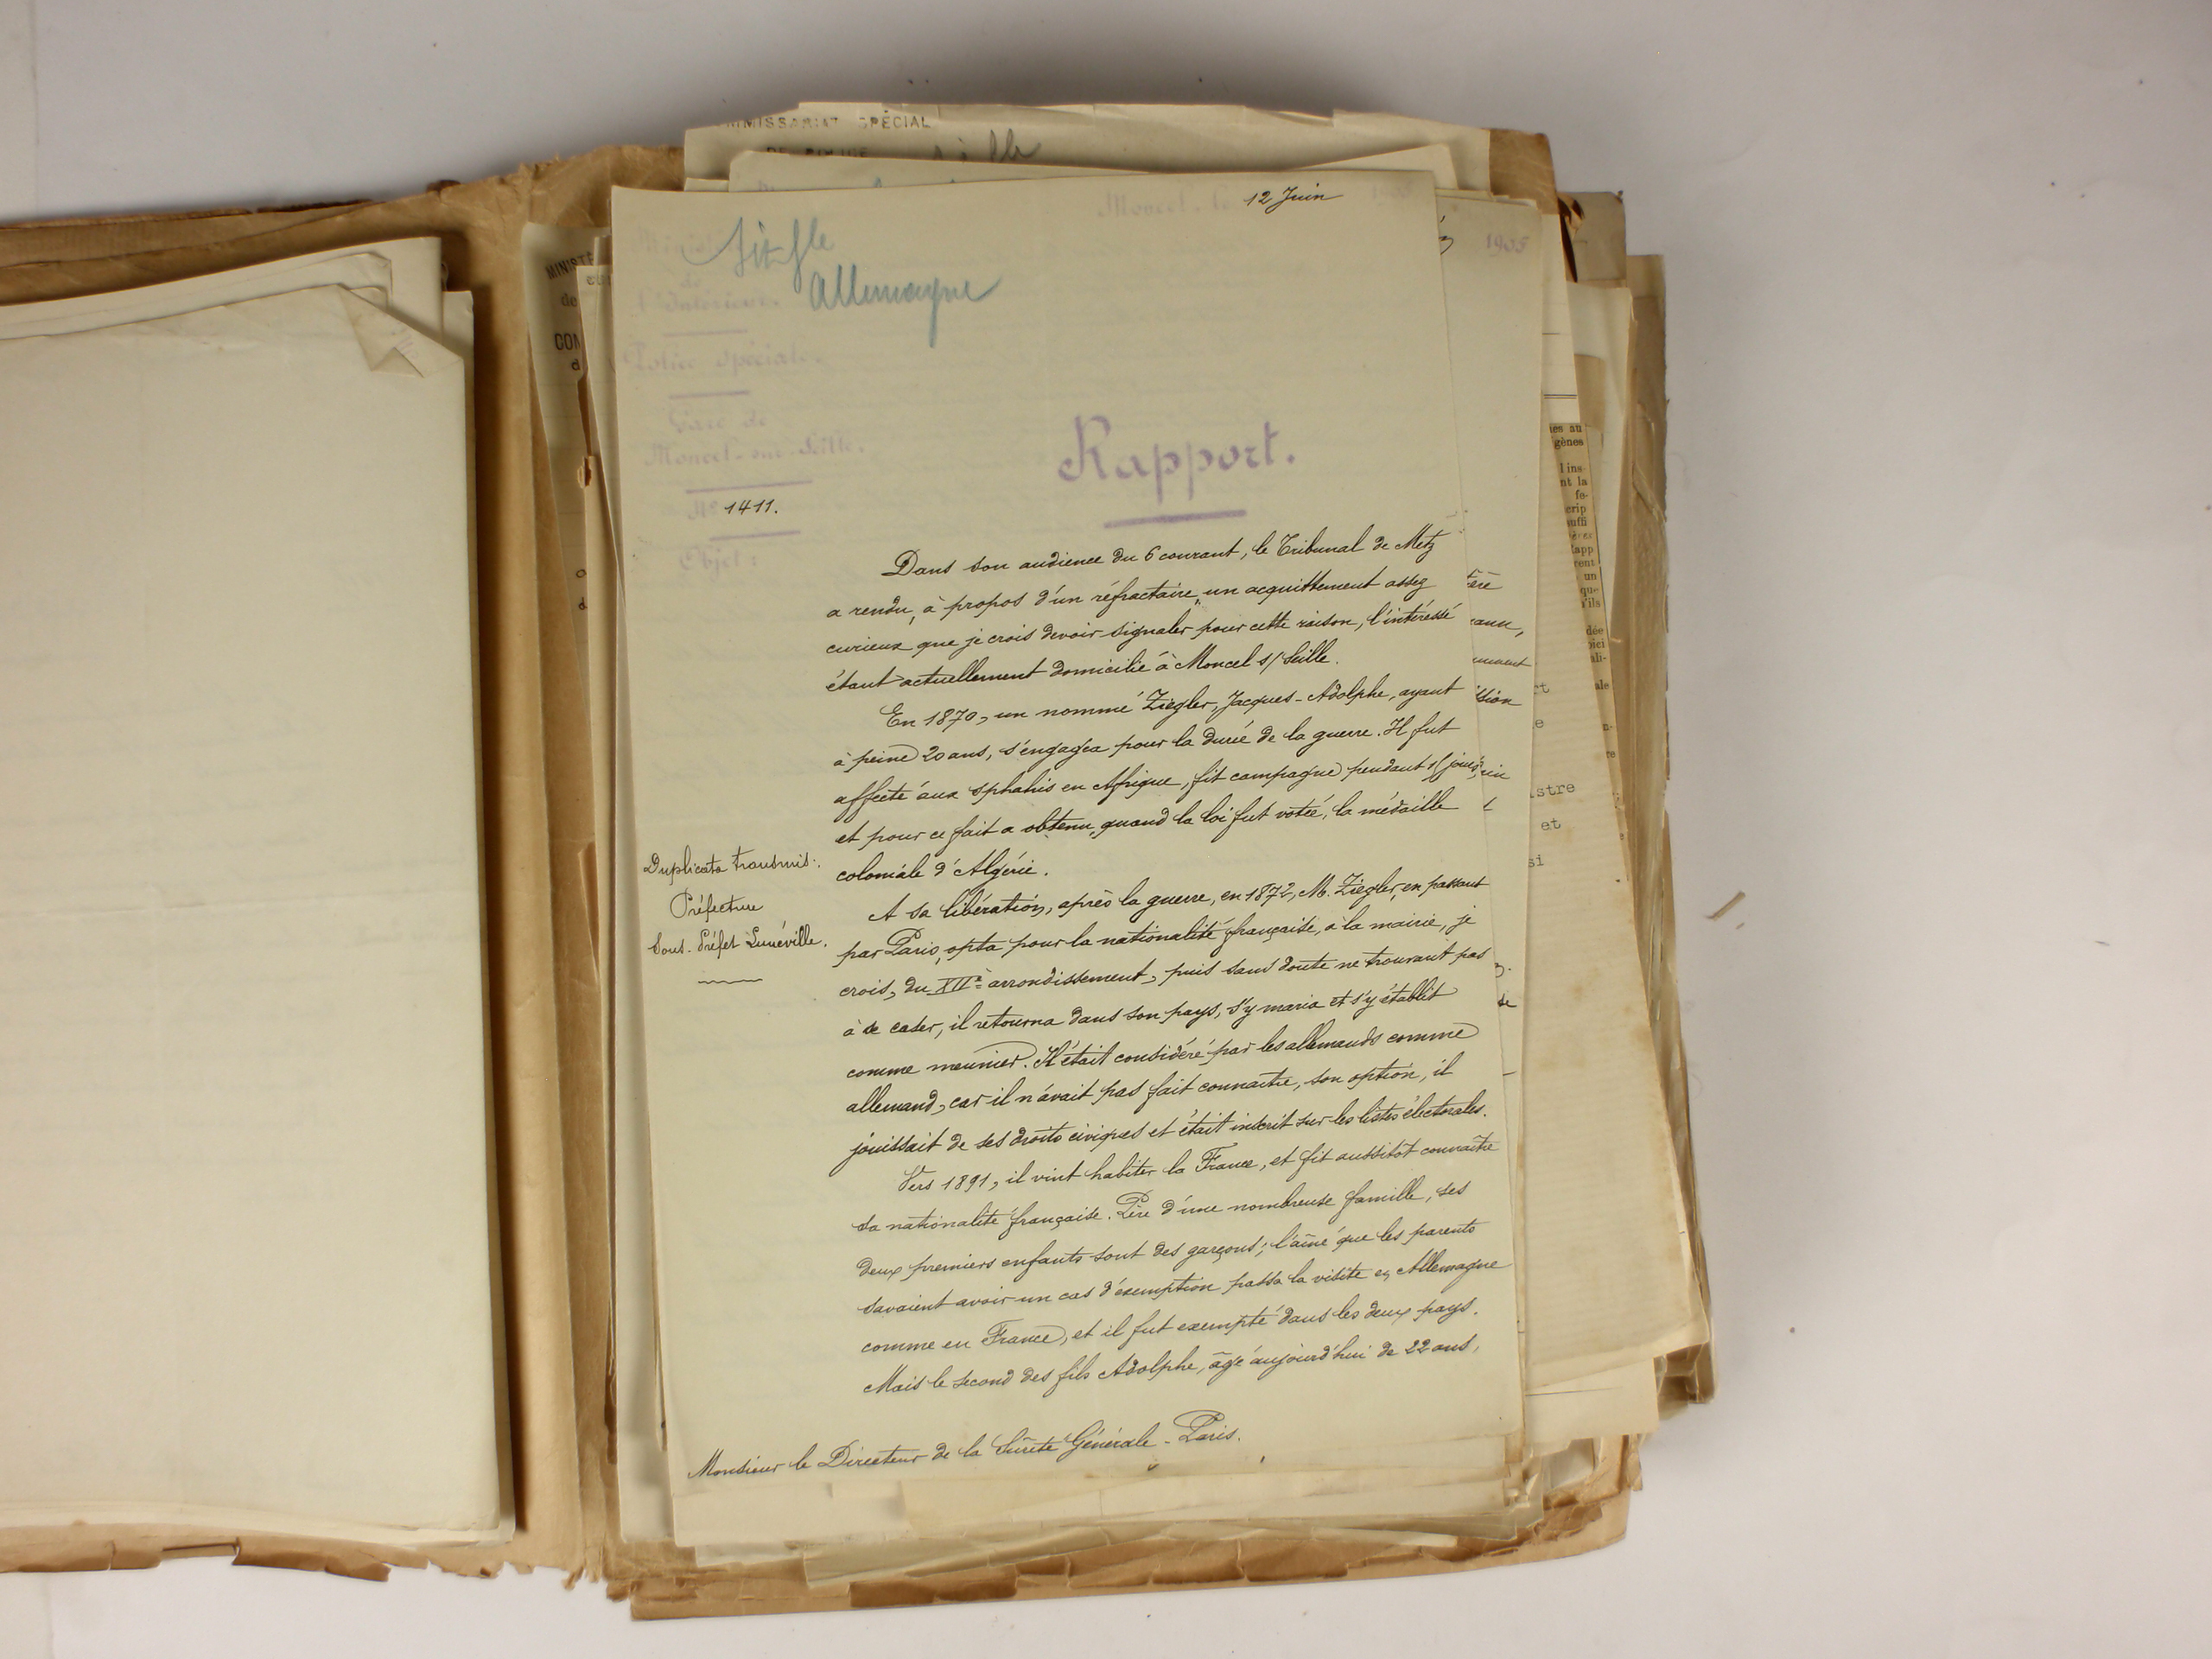 COMMISSARIAT SPÉCIAL
DE POLICE
Moncel, le 12 Juin
1905
Allemagne
MINISTÈ
de
l'Intérieur.
Police Spéciale.
Gare de
Moncel-sur-Seille.
N° 1411.
Objet :
Rapport.
Dans son audience du 6 courant, le Tribunal de Metz
a rendu, à propos d'un réfractaire, un acquittement assez
curieux que je crois devoir signaler pour cette raison, l'intéressé
étant actuellement domicilié à Moncel s/Seille.
En 1870, un nommé Ziegler, Jacques-Adolphe, ayant
à peine 20 ans, s'engagea pour la durée de la guerre. Il fut
affecté aux sphahis en Afrique, fit campagne pendant 15 jours,
et pour ce fait a obtenu, quand la loi fut votée, la médaille
coloniale d'Algérie.
Duplicata transmis :
Préfecture
Sous-Préfet Lunéville.
A sa libération, après la guerre, en 1872, M. Ziegler, en passant
par Paris, opta pour la nationalité française, à la mairie, je
crois, du XIIe arrondissement, puis sans doute ne trouvant pas
à se caser, il retourna dans son pays, s'y maria et s'y établit
comme meunier. Il était considéré par les allemands comme
allemand, car il n'avait pas fait connaitre, son option, il
jouissait de ses droits civiques et était inscrit sur les listes électorales.
Vers 1891, il vint habiter la France, et fit aussitôt connaître
sa nationalité française. Père d'une nombreuse famille, ses
deux premiers enfants sont des garçons; l'aîné que les parents
savaient avoir un cas d'exemption passa la visite en Allemagne
comme en France, et il fut exempté dans les deux pays.
Mais le second des fils Adolphe, âgé aujourd'hui de 22 ans,
Monsieur le Directeur de la Sûreté Générale - Paris.